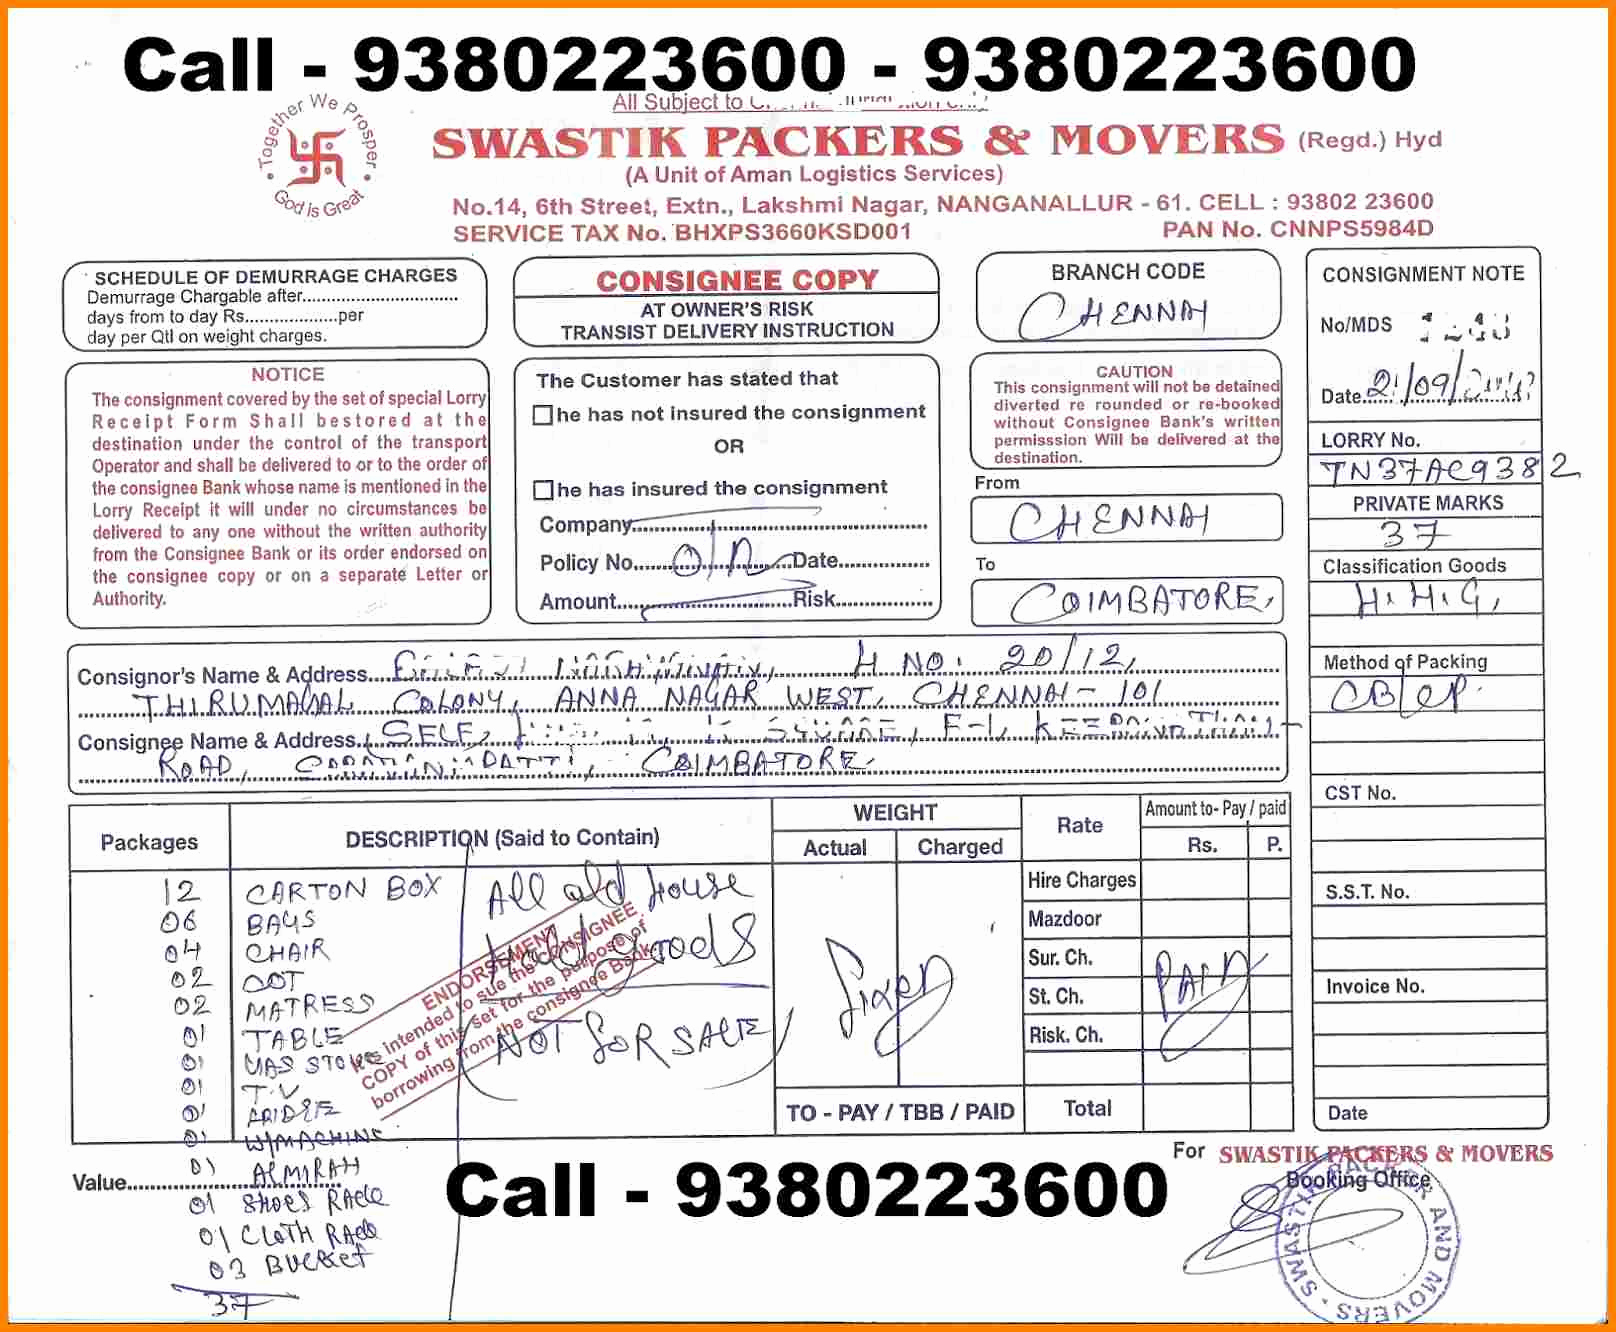 Call - 9380223600 - 9380223600
All Subject to
Together We Prosper
God Is Great
SWASTIK PACKERS & MOVERS (Regd.) Hyd
(A Unit of Aman Logistics Services)
No.14, 6th Street, Extn., Lakshmi Nagar, NANGANALLUR - 61. CELL : 93802 23600
SERVICE TAX No. BHXPS3660KSD001
PAN No. CNNPS5984D
SCHEDULE OF DEMURRAGE CHARGES
Demurrage Chargable after
days from to day Rs.................per
day per Qtl on weight charges.
NOTICE
The consignment covered by the set of special Lorry
Receipt Form Shall bestored at the
destination under the control of the transport
Operator and shall be delivered to or to the order of
the consignee Bank whose name is mentioned in the
Lorry Receipt it will under no circumstances be
delivered to any one without the written authority
from the Consignee Bank or its order endorsed on
the consignee copy or on a separate Letter or
Authority.
CONSIGNEE COPY
AT OWNER'S RISK
TRANSIST DELIVERY INSTRUCTION
The Customer has stated that
he has not insured the consignment
OR
he has insured the consignment
Company
Policy No. O/R Date
Amount Risk
BRANCH CODE
CHENNAI
CAUTION
This consignment will not be detained
diverted re rounded or re-booked
without Consignee Bank's written
permisssion Will be delivered at the
destination.
From
CHENNAI
To
COIMBATORE,
CONSIGNMENT NOTE
No/MDS
Date 21/09/
LORRY No.
TN37AC9382
PRIVATE MARKS
37
Classification Goods
H.H.G,
Method of Packing
CB/CP.
CST No.
S.S.T. No.
Invoice No.
Date
Consignor's Name & Address H NO. 20/12,
THIRUMAGAL COLONY, ANNA NAGAR WEST, CHENNAI - 101
Consignee Name & Address SELF, SQUARE, F-1,
ROAD, COIMBATORE.
Packages DESCRIPTION (Said to Contain) WEIGHT Rate Amount to- Pay / paid
Actual Charged Rs. P.
12 CARTON BOX
06 BAGS
04 CHAIR
02 COT
02 MATRESS
01 TABLE
01 GAS STOVE
01 T.V
01 FRIDGE
01 W/MACHINE
01 ALMIRAH
01 SHOES RACK
01 CLOTH RACK
03 BUCKET
37
All old house
hold goods
NOT FOR SALE
ENDORSEMENT
is intended to sue the CONSIGNEE
COPY of this set for the purpose of
borrowing from the consignee Bank
Fixed
Hire Charges
Mazdoor
Sur. Ch.
St. Ch.
Risk. Ch.
PAID
TO - PAY / TBB / PAID Total
Value
Call - 9380223600
For SWASTIK PACKERS & MOVERS
Booking Office
SWASTIK PACKER AND MOVERS